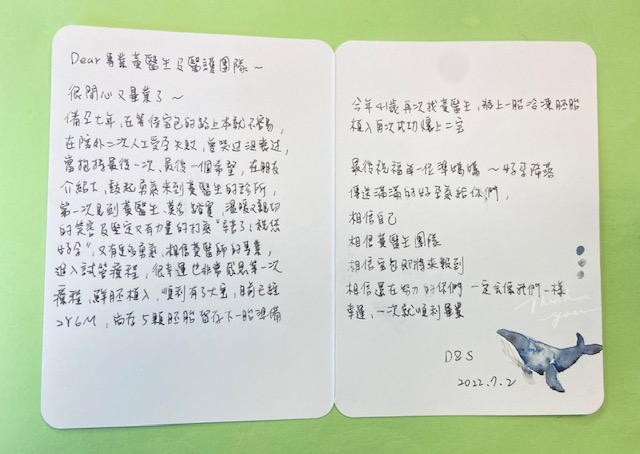 Dear 專業黃醫生及醫護團隊~
很開心又畢業了~
備孕七年,在等待寶包的路上本就不容易,
在院外二次人工受孕失敗,曾哭過沮喪過,
當抱持最後一次、最後一個希望,在朋友
介紹下,鼓起勇氣來到黃醫生的診所,
第一次見到黃醫生、黃太,踏實,溫暖又親切
的笑容及堅定又有力量的打氣"辛苦了!祝你
好孕",又有進步勇氣,相信黃醫師的專業,
進入試管療程,很幸運也非常感恩第一次
療程,鮮胚植入,順利有了大寶,目前已經
2Y6M,尚存5顆胚胎留存下一胎準備
今年41歲再次找黃醫生,將上一胎冷凍胚胎
植入再次成功懷上二寶
最後祝福每一位準媽媽~好孕降落
傳送滿滿的好孕氣給你們,
相信自己
相信黃醫生團隊
相信寶包即將來報到
相信還在努力的你們 一定會像我們一樣
幸運,一次就順利畢業
Thank
you
D&S
2022.7.2